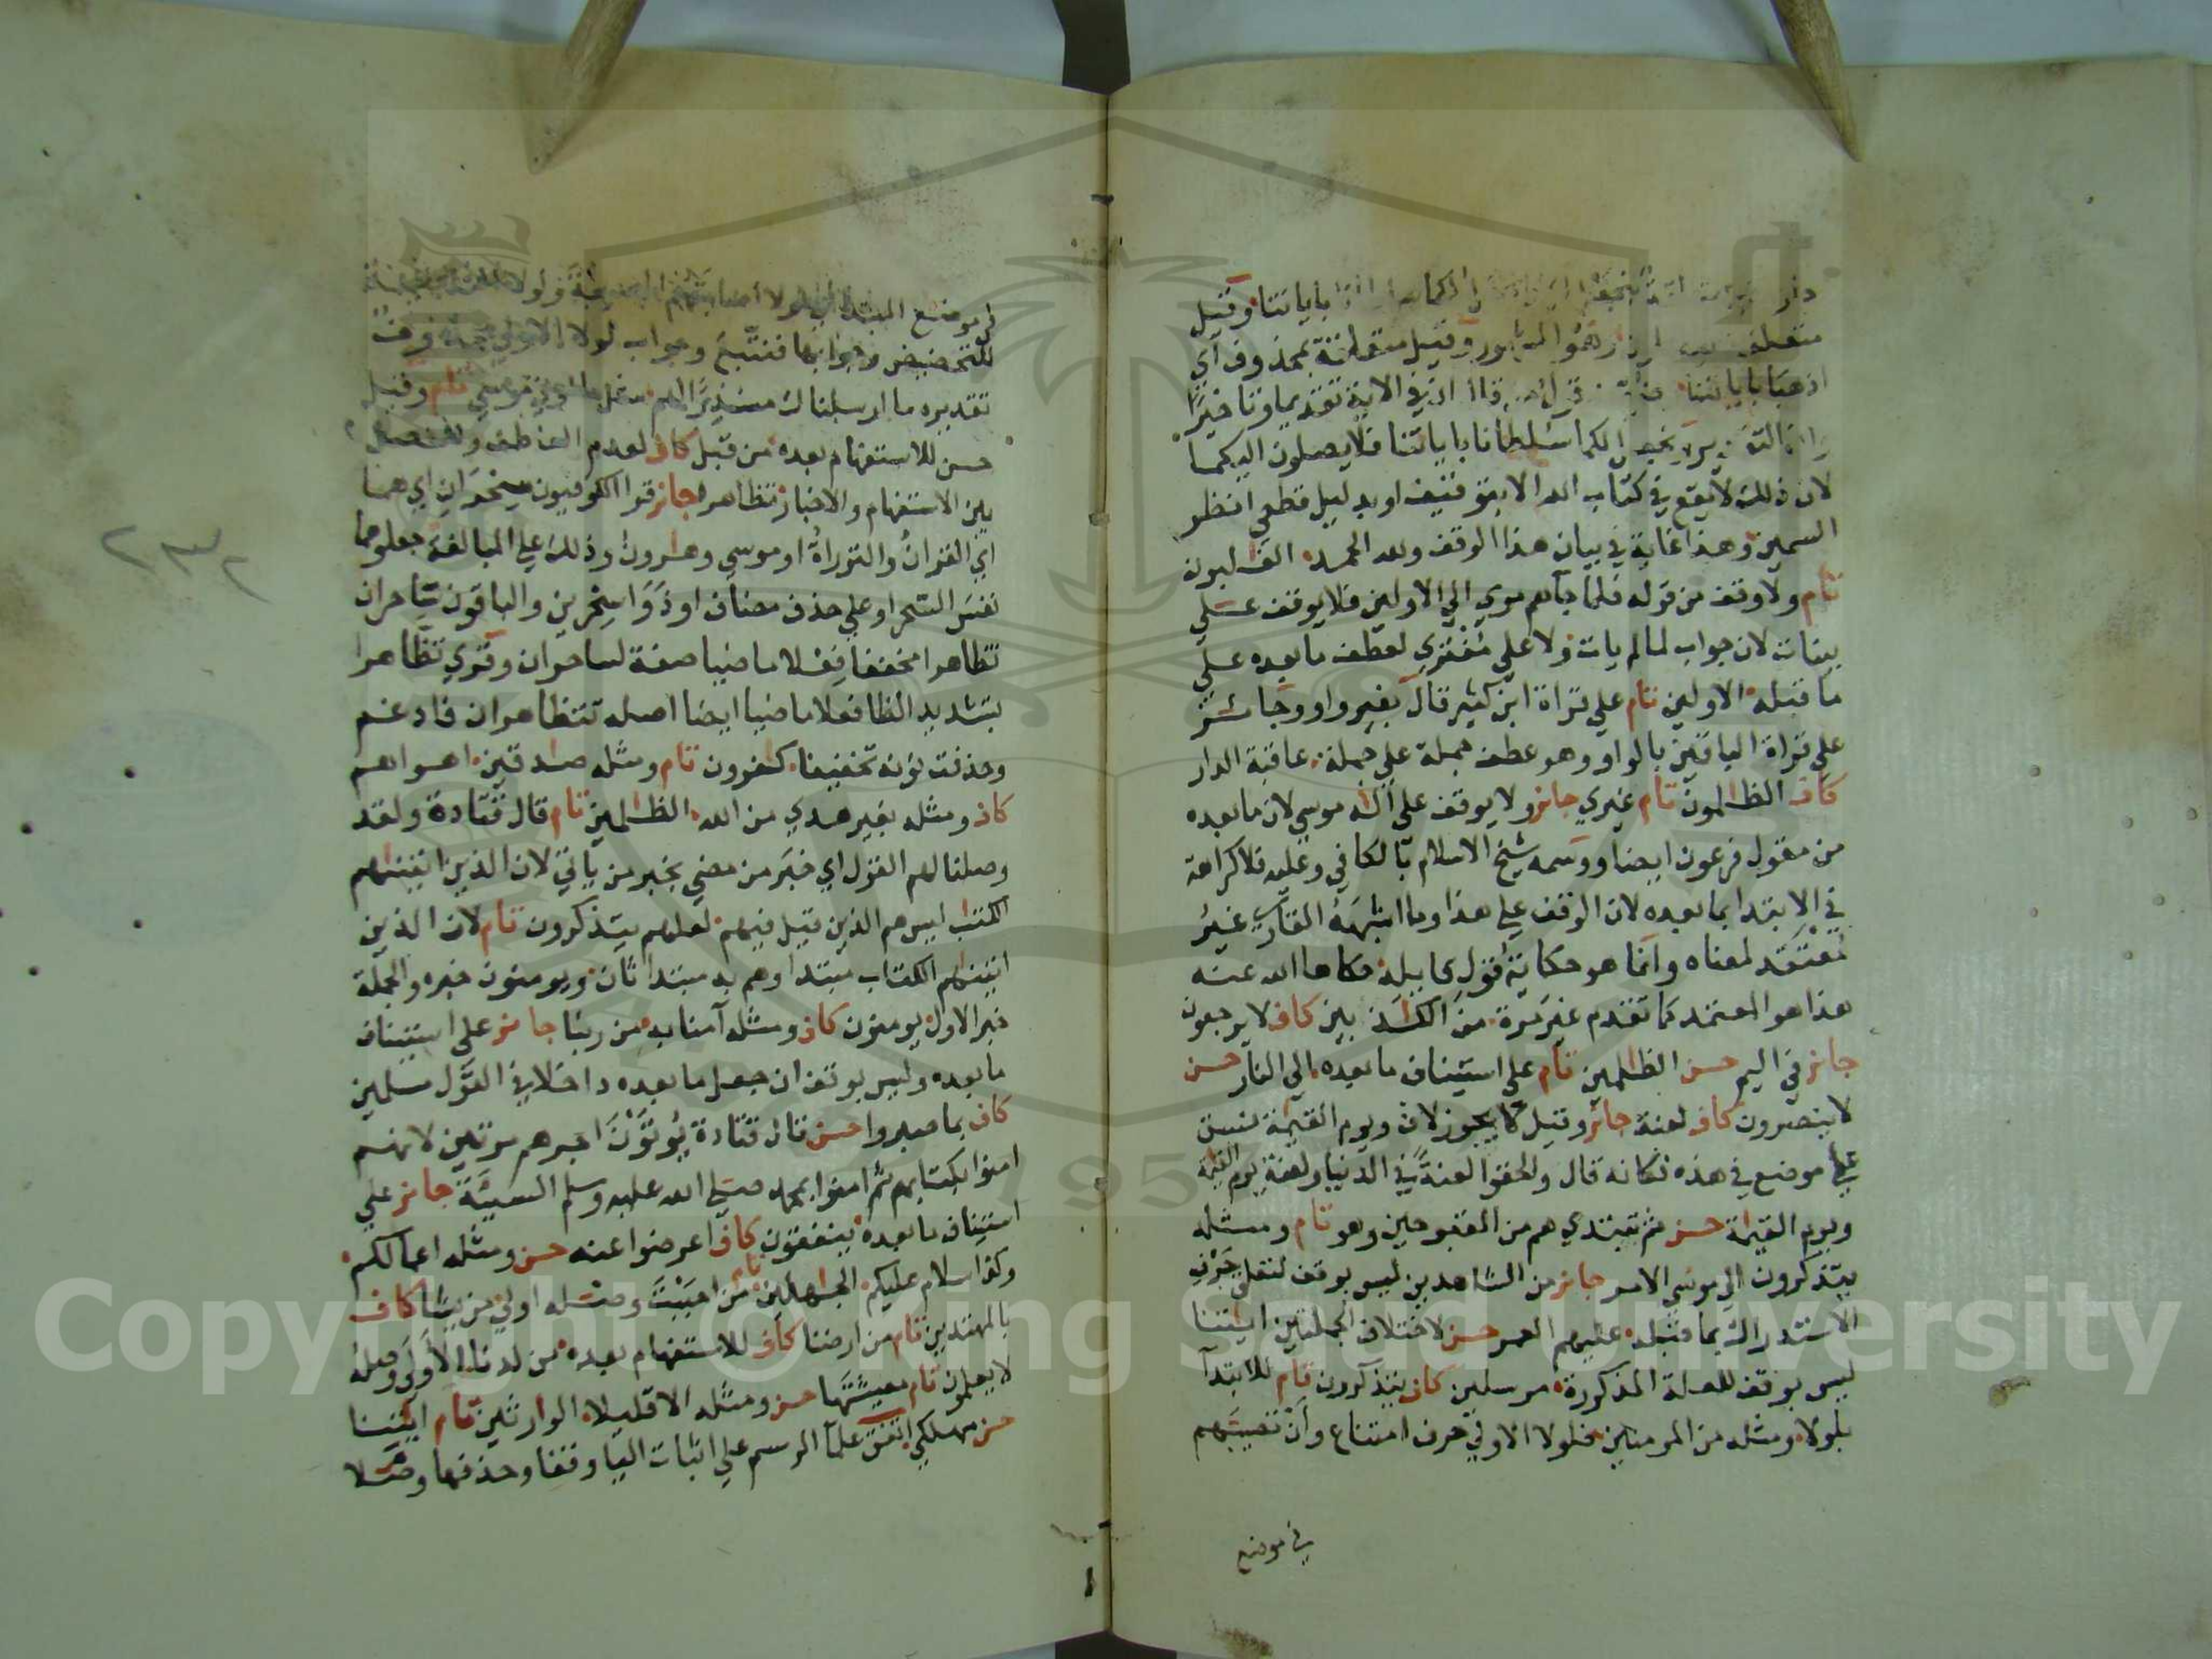 باياتنا وقيل
متعلقة بمحذوف اي
اذهبا باياتنا في الاية تقديما وتاخيرا
لكما سلطانا باياتنا فلا يصلون اليكما
لان ذلك لا يقع في كتاب الله الا بتوقيف او بدليل قطعي انظر
السمين وهذا غاية في بيان هذا الوقف ولله الحمد الغالبون
تام ولا وقف من قوله فلما جاءهم موسي الي الاولين فلا يوقف علي
بينات لان جواب لما لم يات ولا علي مفتري لعطف ما بعده علي
ما قبله الاولين تام علي قراة ابن كثير قال بغير واو وجائز
علي قراة الباقين بالواو وهو عطف جملة علي جملة عاقبة الدار
كاف الظالمون تام غيري جائز ولا يوقف علي اله موسي لان ما بعده
من مقول فرعون ايضا ووسمه شيخ الاسلام بالكافي وعليه فلا كراهة
في الابتدا بما بعده لان الوقف علي هذا وما اشبهه القاري غير
معتقد لمعناه وانما هو حكاية قول قايله حكاها الله عنه
هذا هو المعتمد كما تقدم غير مرة من الكذبين كاف لا يرجعون
جائز في اليم حسن الظلمين تام علي استيناف ما بعده الي النار حسن
لا ينصرون كاف لعنة جائز وقيل لا يجوز لان ويوم القيمة نسق
علي موضع في هذه فكانه قال والحقوا لعنة في الدنيا ولعنة يوم القيمة
ويوم القيمة حسن ثم تبتدي هم من المقبوحين وهو تام ومثله
يتذكرون الي موسي الامر جائز من الشاهدين ليس بوقف لتعلق حرف
الاستدراك بما قبله عليهم العمر حسن لاختلاف الجملتين ايتنا
ليس بوقف للعلة المذكورة مرسلين كاف يتذكرون تام للابتدا
بلولا ومثله من المومنين فلولا الاولي حرف امتناع وان تصيبهم
في موضع
في موضع المبتدا
للتحضيض وجوابها فنتبع وجواب لولا الاولي محذوف
تقديره ما ارسلناك منذرا لهم مثل ما اوتي موسي تام وقيل
حسن للاستفهام بعده من قبل كاف لعدم العاطف ولفصل
بين الاستفهام والاخبار تظاهرا جائز قرا الكوفيون سحران اي هما
اي القران والتوراة او موسي وهارون وذلك علي المبالغة جعلوهما
نفس السحر او علي حذف مضاف او ذوا سحرين والباقون ساحران
تظاهرا مخففا فعلا ماضيا صفة لساحران وقري تظاهرا
بتشديد الظا فعلا ماضيا ايضا اصله تتظاهران فادغم
وحذفت نونه تخفيفا كفرون تام ومثله صدقين اهواهم
كاف ومثله بغير هدي من الله الظلمين تام قال قتادة ولقد
وصلنا لهم القول اي خبر من مضي بخبر من ياتي لان الذين اتيناهم
الكتاب ليس هم الذين قيل فيهم لعلهم يتذكرون تام لان الذين
اتيناهم الكتاب مبتدا وهم به مبتدا ثان ويومنون خبره والجملة
خبر الاول يومنون كاف ومثله آمنا به من ربنا جائز علي استيناف
ما بعده وليس بوقف ان جعل ما بعده داخلا في القول مسلمين
كاف بما صبروا حسن قال قتادة يؤتون اجرهم مرتين لانهم
امنوا بكتابهم ثم امنوا بمحمد صلي الله عليه وسلم السيئة جائز علي
استيناف ما بعده ينفقون كاف اعرضوا عنه حسن ومثله اعمالكم
وكذا سلام عليكم الجاهلين تام من احببت ومثله اولي من يشا كاف
بالمهتدين تام من ارضنا كاف للاستفهام بعده من لدنا الاولي وصله
لا يعلمون تام معيشتها حسن ومثله الا قليلا الوارثين تام ايتنا
حسن مهلكي اتفق علما الرسم علي اثبات اليا وقفا وحذفها وصلا
٢٣٢
Copyright © King Saud University
195